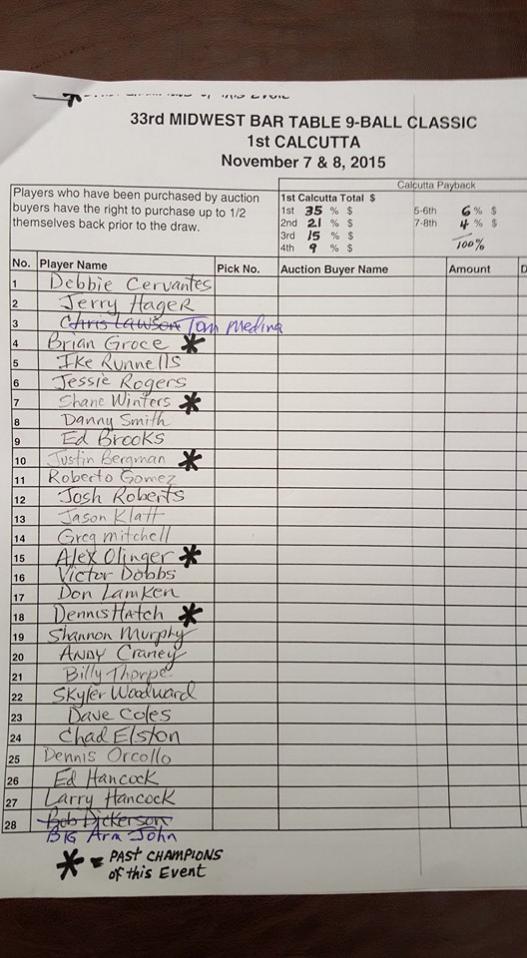 OF THIS EVENT
33rd MIDWEST BAR TABLE 9-BALL CLASSIC
1st CALCUTTA
November 7 & 8, 2015
Calcutta Payback
Players who have been purchased by auction
buyers have the right to purchase up to 1/2
themselves back prior to the draw.
1st Calcutta Total $
1st 35 % $ 5-6th 6 % $
2nd 21 % $ 7-8th 4 % $
3rd 15 % $
4th 9 % $ 100%
No. Player Name Pick No. Auction Buyer Name Amount D
1 Debbie Cervantes
2 Jerry Hager
3 Chris Lawson Tom Medina
4 Brian Groce *
5 Ike Runnells
6 Jessie Rogers
7 Shane Winters *
8 Danny Smith
9 Ed Brooks
10 Justin Bergman *
11 Roberto Gomez
12 Josh Roberts
13 Jason Klatt
14 Greg mitchell
15 Alex Olinger *
16 Victor Dobbs
17 Don Lamken
18 Dennis Hatch *
19 Shannon Murphy
20 ANDY Craney
21 Billy Thorpe
22 Skyler Woodward
23 Dave Coles
24 Chad Elston
25 Dennis Orcollo
26 Ed Hancock
27 Larry Hancock
28 Bob Dickerson
BIG Arm John
* = PAST CHAMPIONS
of this Event